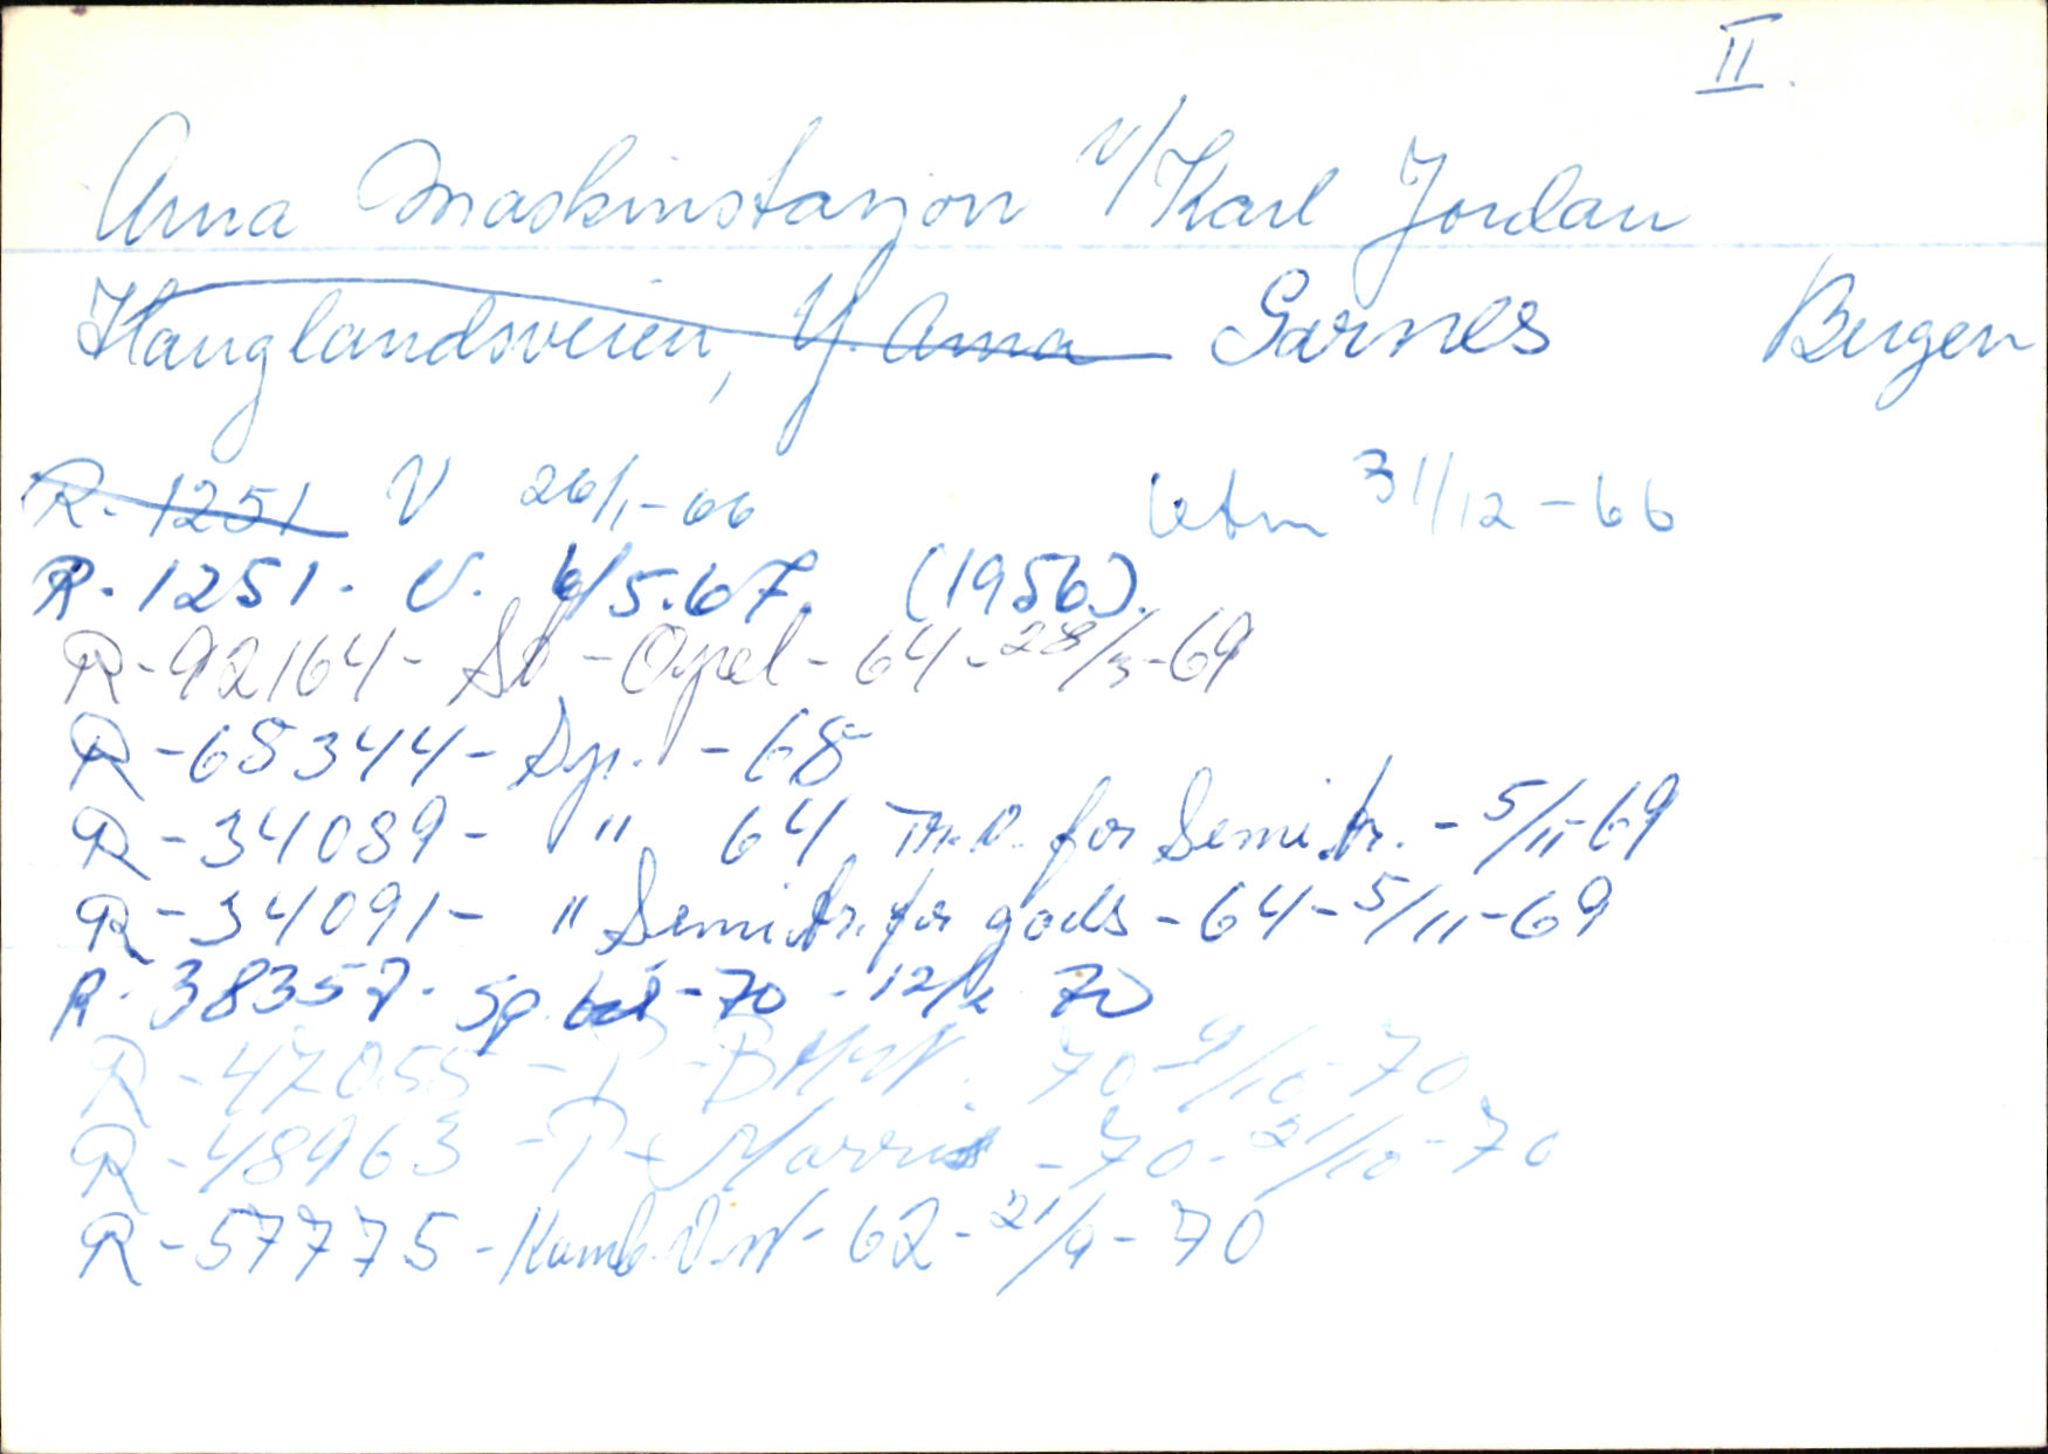 II.
Arna Maskinstasjon v/Karl Jordan
Hauglandsveien, Y. Arna Garnes Bergen
R-1251 V 26/1-66 31/12-66
R-1251. V. 6/5.67. (1956).
R-92164- Sb -Opel-64-28/3-69
R-68344- Dyn. -68
R-34089- " 64 m.v. for Semitr. -5/11-69
R-34091- " Semitr. for gods-64-5/11-69
R-38357- sp. bil-70-12/2 70
R-47055-P-BMW. 70-9/10-70
R-48963-P-Morris-70-21/10-70
R-57775-Komb.V.W-62-21/9-70